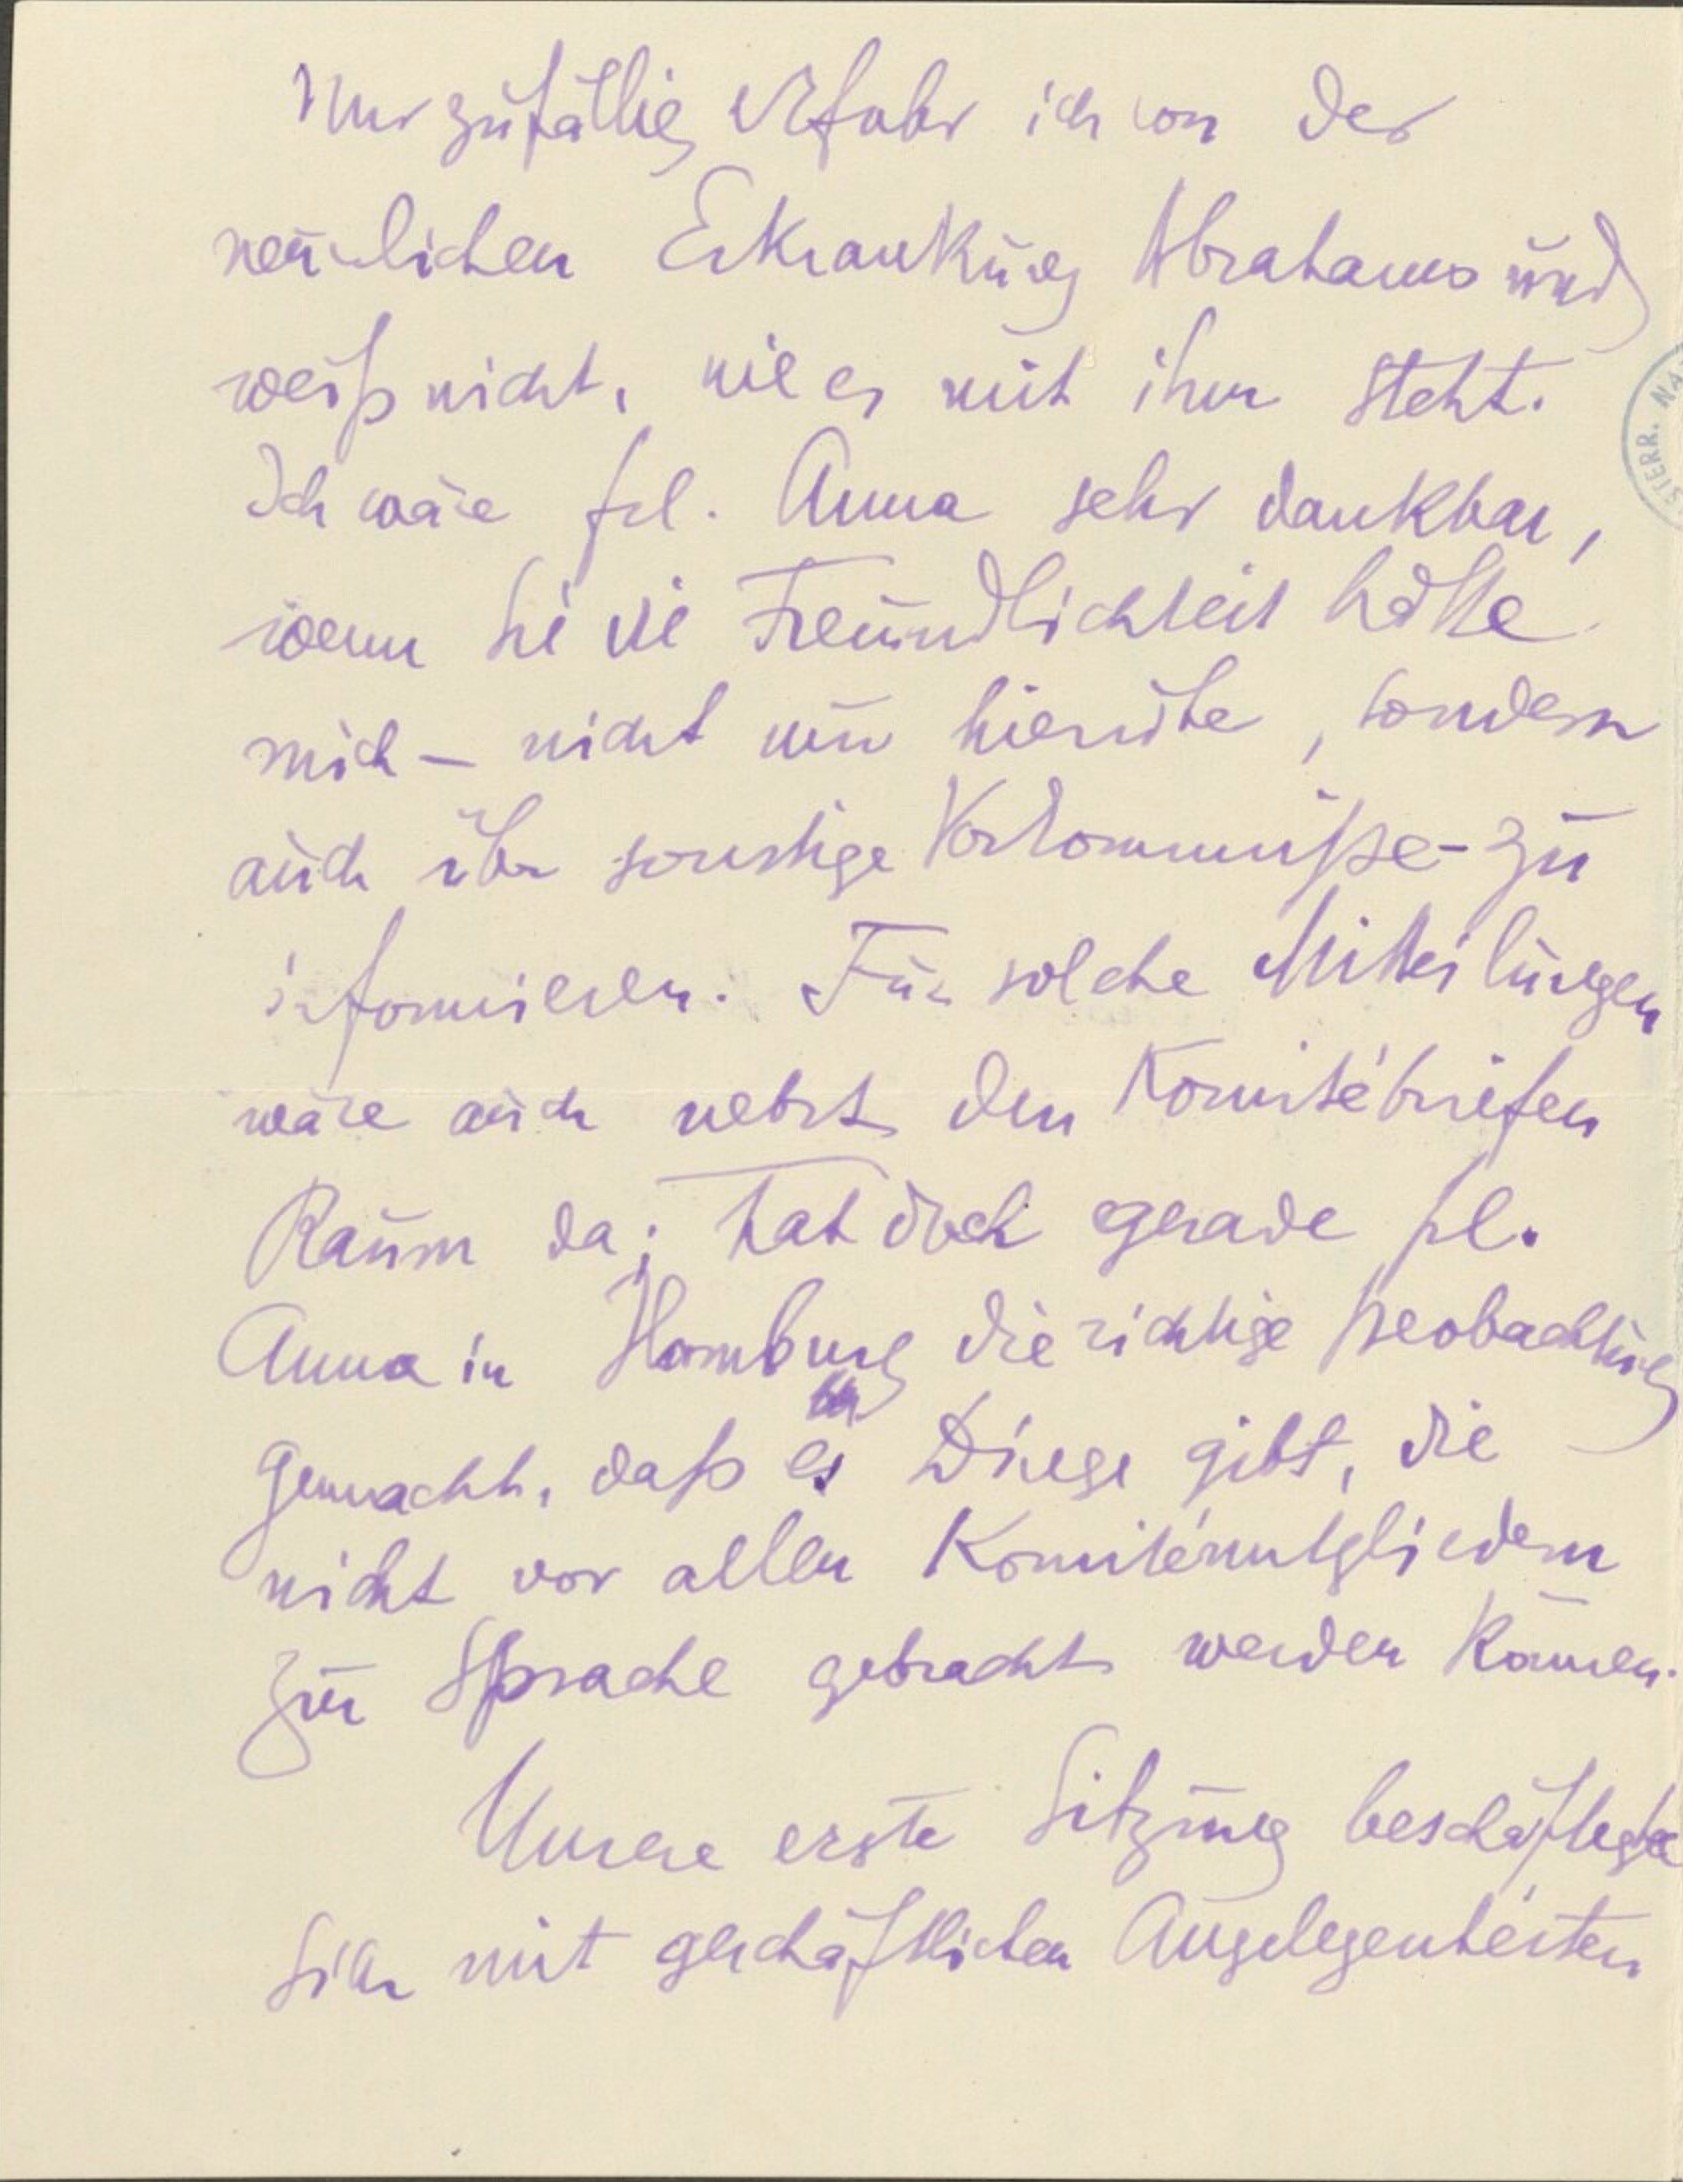 Nur zufällig erfahr ich von der
neuerlichen Erkrankung Abrahams und
weiß nicht, wie es mit ihm steht.
Ich wäre Frl. Anna sehr dankbar,
wenn sie die Freundlichkeit hätte
mich – nicht nur hierüber, sondern
auch über sonstige Vorkommniße – zu
informieren. Für solche Mitteilungen
wäre auch nebst den Komitébriefen
Raum da; hat doch gerade Frl.
Anna in Homburg die richtige Beobachtung
gemacht, daß es Dinge gibt, die
nicht vor allen Komitémitgliedern
zur Sprache gebracht werden können.
Unsere erste Sitzung beschäftigte
sich mit geschäftlichen Angelegenheiten
STERR. NA